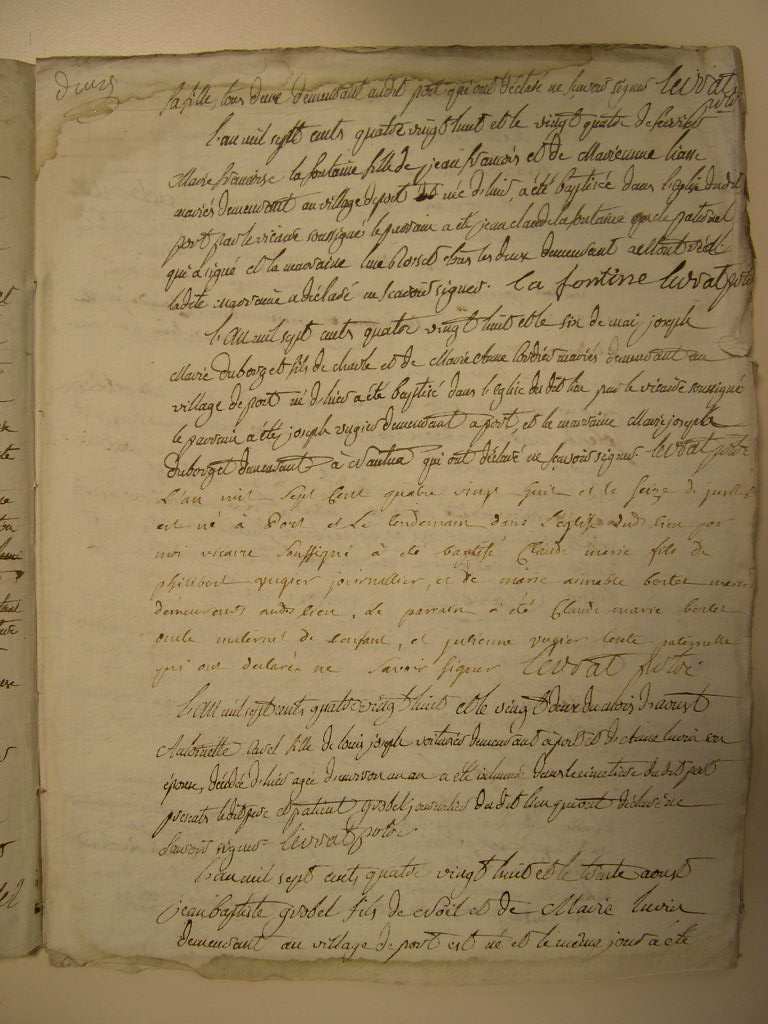 deux
sa fille, tous deux demeurant audit port qui ont déclaré ne sçavoir signer levrat
ptre
L'an mil sept cents quatre vingt huit et le vingt quatre de fevrier
Marie francoise la fontaine fille de jean francois et de Marienne
mariés demeurant au village de port née d'hier, a été baptisée dans l'église dudit
port par le vicaire soussigné le parrain a été jean claude la fontaine oncle paternel
qui a signé et la marraine tous les deux demeurant
ladite marraine a déclaré ne scavoir signer. la fontine levrat ptre
L'an mil sept cents quatre vingt huit et le six de mai joseph
Marie duborget fils de charle et de Marie Anne mariés demeurant au
village de port né d'hier a été baptisé dans l'église du dit lieu par le vicaire soussigné
le parrain a été joseph vugier demeurant a port, et la marraine Marie joseph
duborget demeurant à Nantua qui ont déclaré ne sçavoir signer levrat ptre
L'an mil sept Cent quatre vingt huit et le seize de juillet
est né à Port et Le lendemain dans l'église dudt lieu par
moi vicaire soussigné à été baptisé Claude marie fils de
philibert vugier journallier, et de marie aimable bertet mariés
demeurents audt lieu, Le parrain à été Claude marie bertet
oncle maternel de l'enfant, et julienne vugier tente paternelle
qui ont declarés ne savoir signer levrat ptre
L'an mil sept cents quatre vingt huit et le vingt deux du mois d'aoust
Antoinette avel fille de louis joseph voiturier demeurant à port et de Anne son
épouse, décédée d'hier agée d'environ un an a été inhumée dans le cimetiere du dit port
presents ledit pere et patient grobel journalier du dit lieu qui ont déclaré ne
savoir signer levrat ptre
L'an mil sept cents quatre vingt huit et le trente aoust
jean baptiste grobel fils de Noël et de Marie
demeurant au village de port est né et le même jour a été